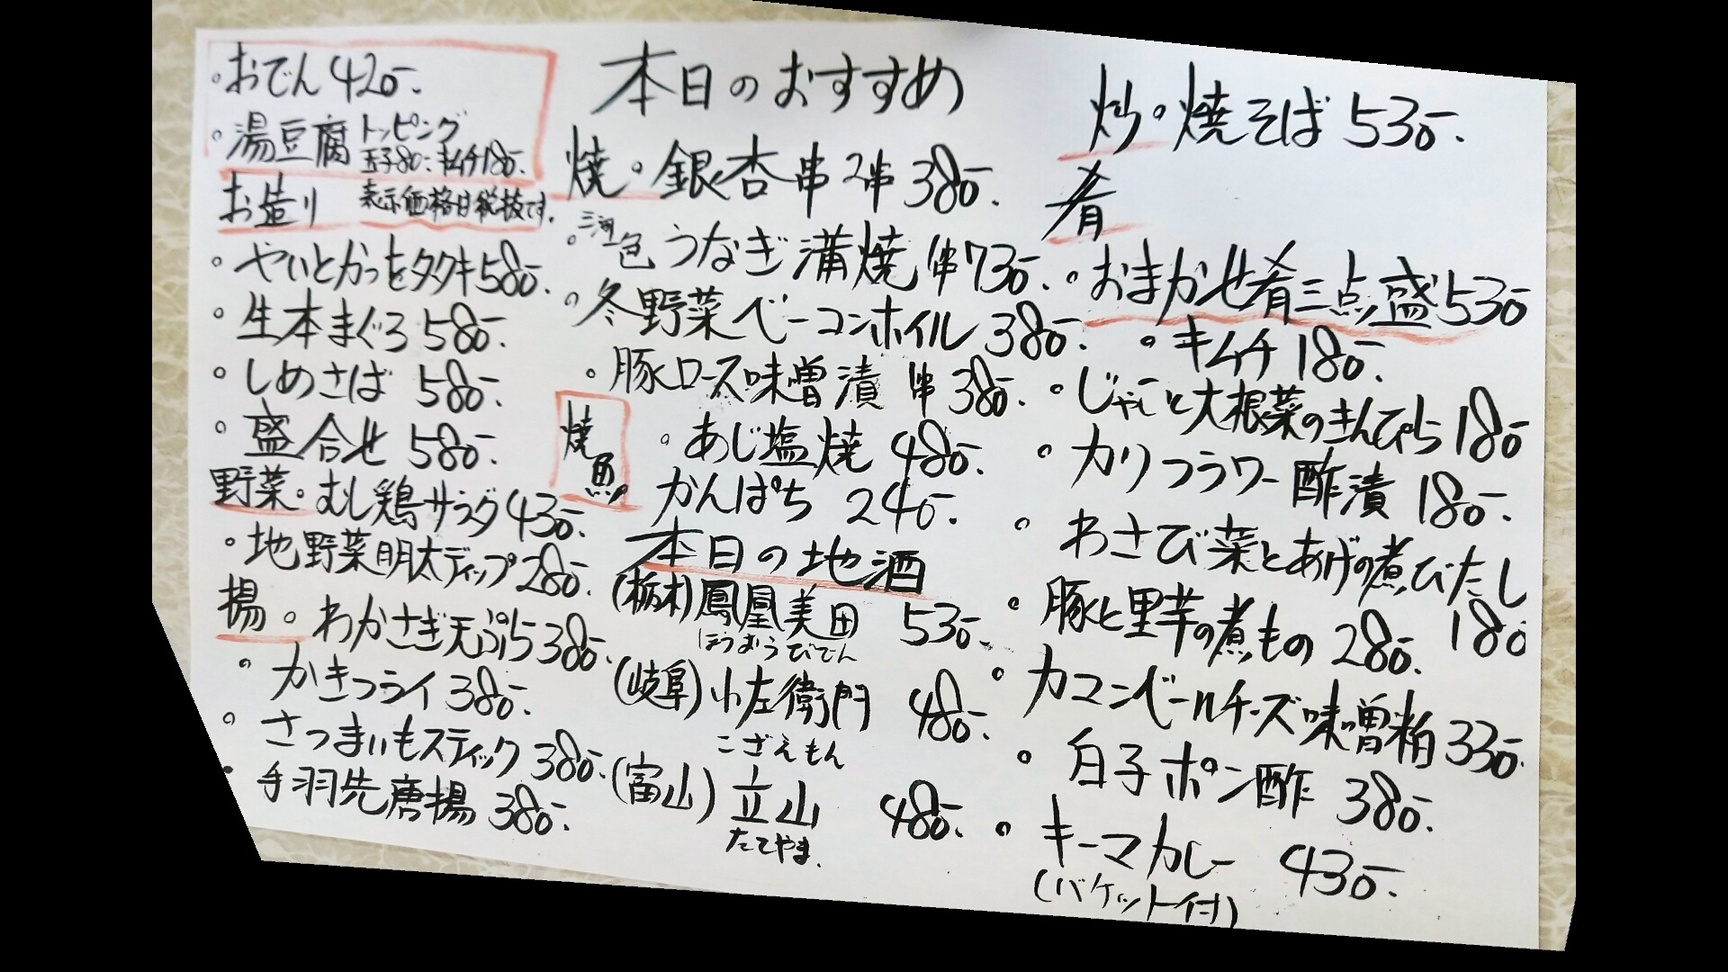 本日のおすすめ
おでん 420-.
湯豆腐 トッピング
玉子80-. キムチ180-.
お造り 表示価格は税抜です。
やいとかつをタタキ 580-.
生本まぐろ 580-.
しめさば 580-.
盛合せ 580-.
野菜。むし鶏サラダ 430-.
地野菜明太ディップ 280-.
揚。わかさぎ天ぷら 380-.
かきフライ 380-.
さつまいもスティック 380-.
手羽先唐揚 380-.
焼。銀杏串 2串 380-.
三河一色 うなぎ蒲焼串 730-.
冬野菜ベーコンホイル 380-.
豚ロース味噌漬串 380-.
焼魚
あじ塩焼 480-.
かんぱち 240-.
本日の地酒
(栃木) 鳳凰美田 530-.
ほうおうびでん
(岐阜) 小左衛門 480-.
こざえもん
(富山) 立山 480-.
たてやま.
炒。焼そば 530-.
肴
おまかせ肴三点盛 530
キムチ 180-.
じゃこと大根菜のきんぴら 180
カリフラワー酢漬 180-.
わさび菜とあげの煮びたし
180
豚と里芋の煮もの 280-.
カマンベールチーズ味噌粕 330-.
白子ポン酢 380-.
キーマカレー 430-.
(バケット付)